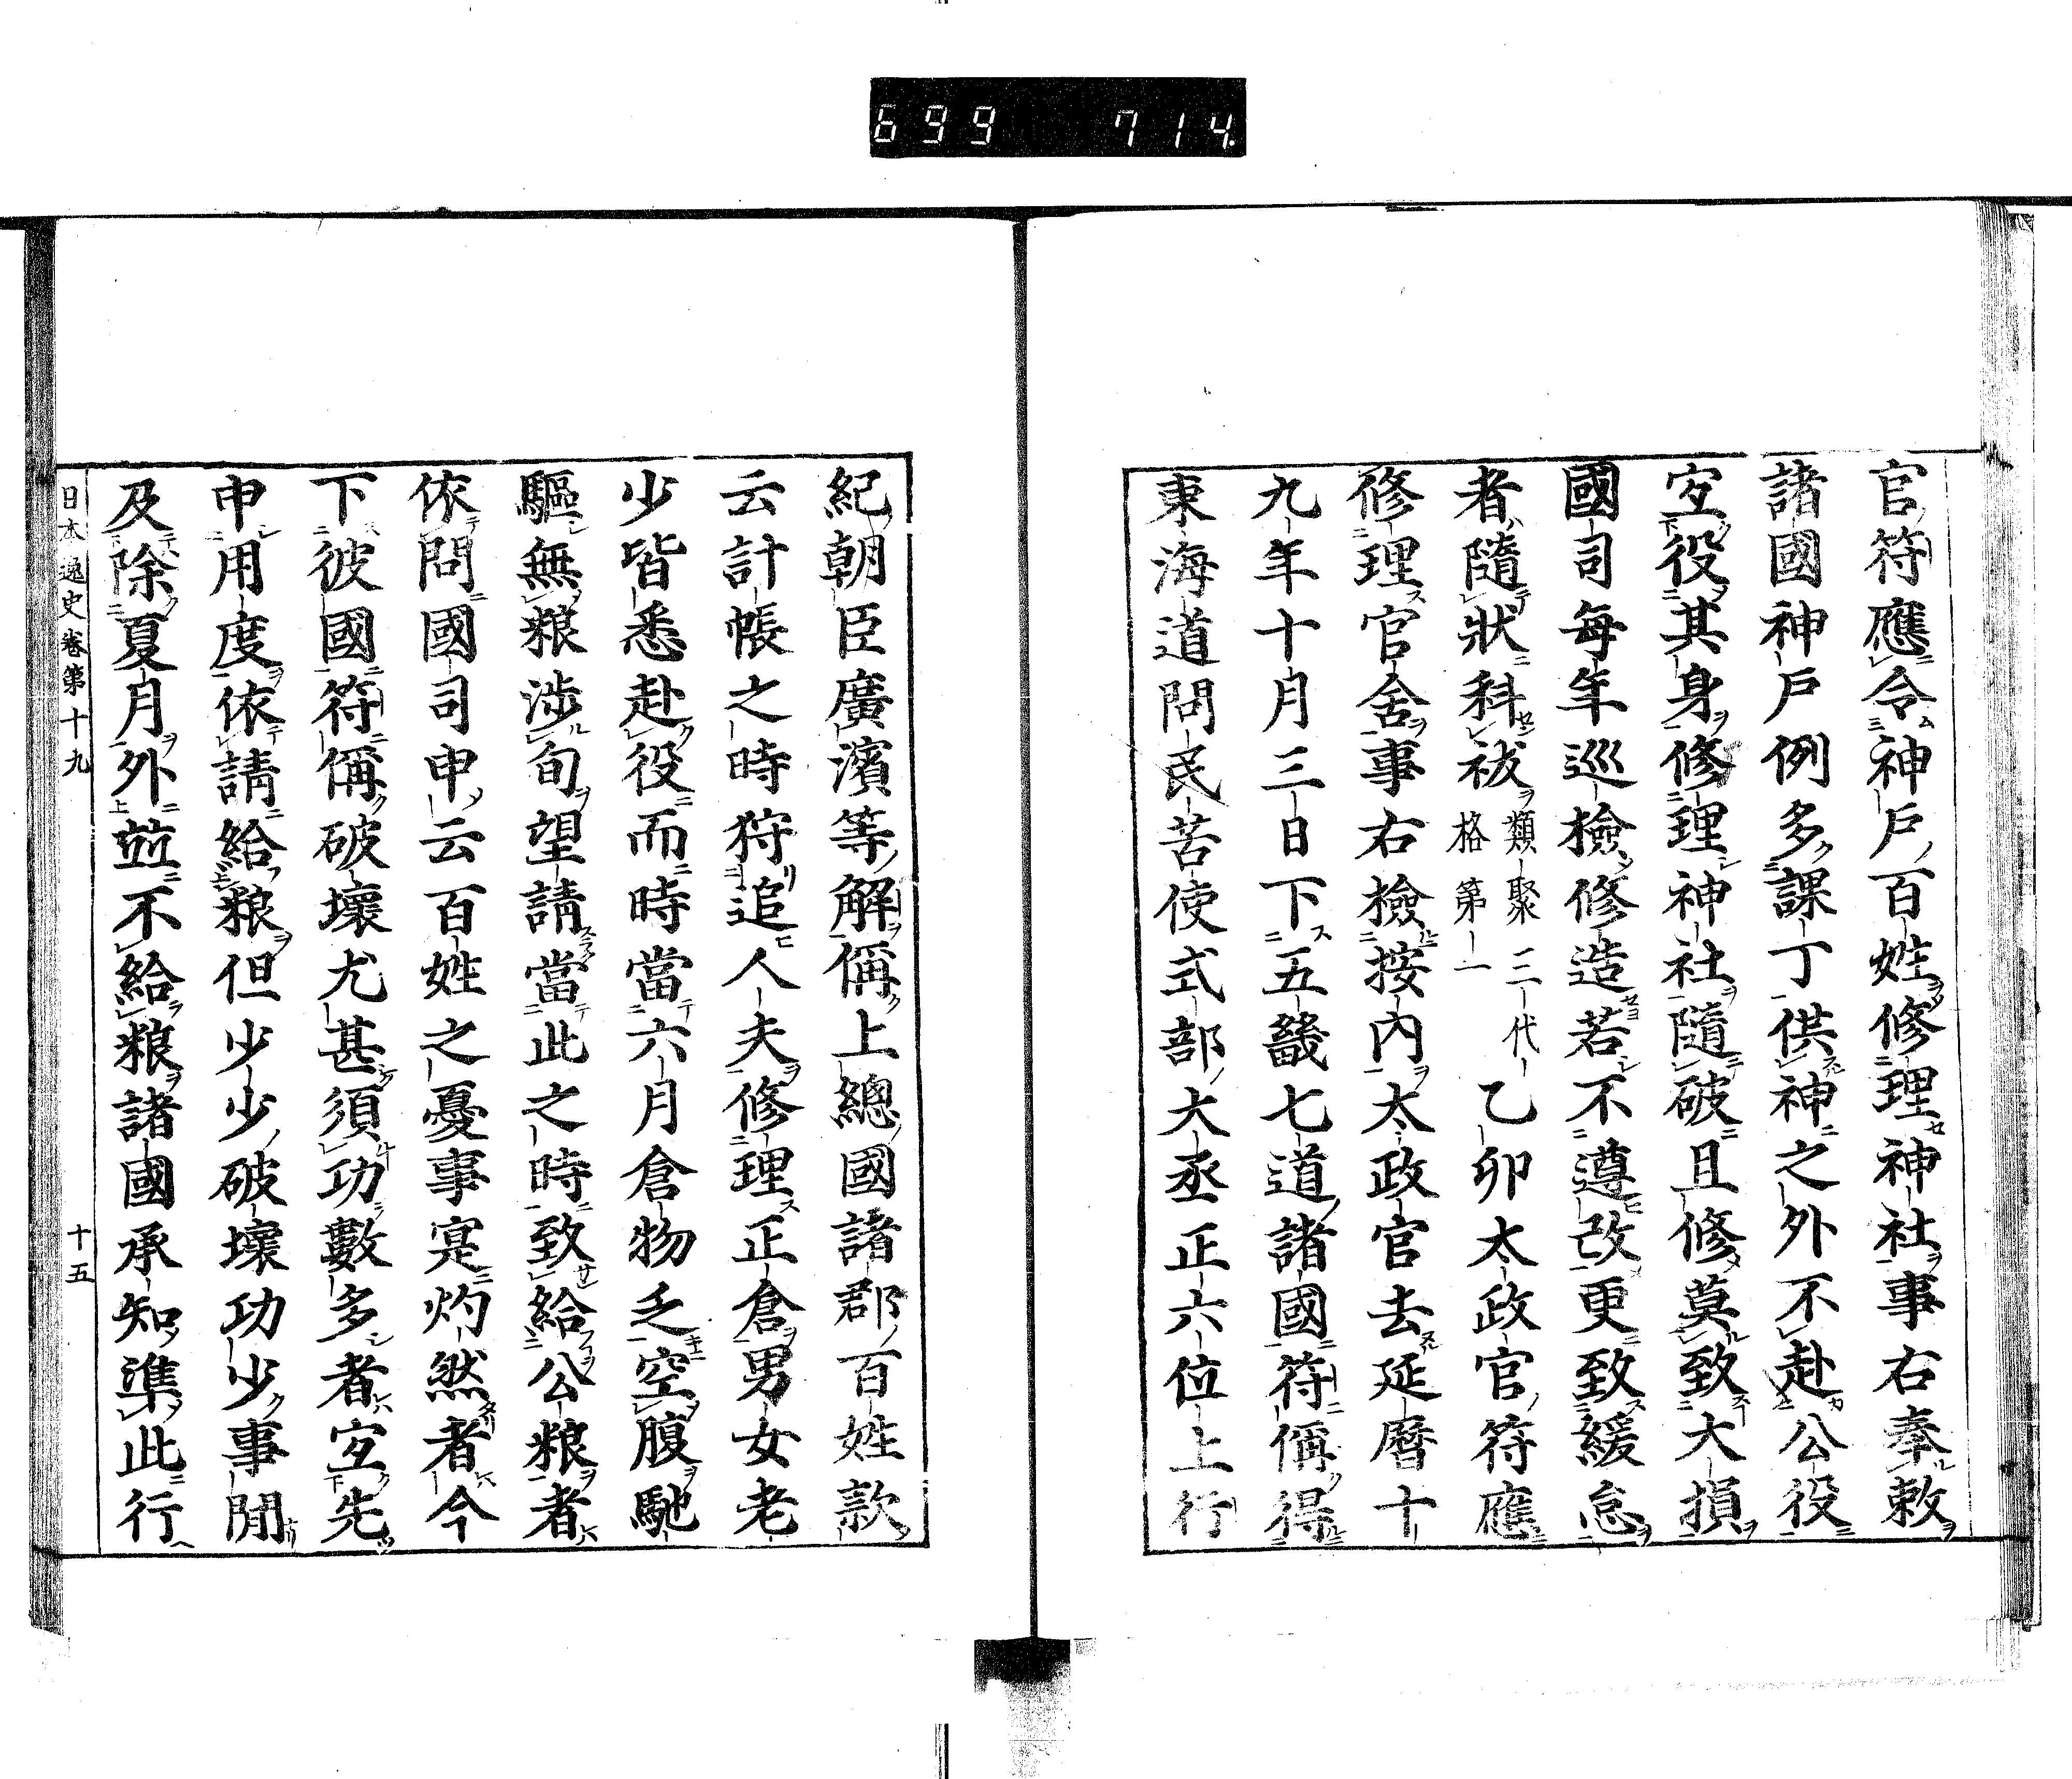 699 714
官符應令神戶百姓修理神社事右奉敕
諸國神戶例多課丁供神之外不赴公役
宜役其身修理神社隨破且修莫致大損
國司每年巡檢修造若不遵改更致緩怠
者隨狀科祓類聚三代格第一乙卯太政官符應
修理官舍事右檢按內太政官去延曆十
九年十月三日下五畿七道諸國符偁得
東海道問民苦使式部大丞正六位上行
紀朝臣廣濱等解偁上總國諸郡百姓款
云計帳之時狩追人夫修理正倉男女老
少皆悉赴役而時當六月倉物乏空腹馳
驅無粮涉旬望請當此之時致給公粮者
依問國司申云百姓之憂事寔灼然者今
下彼國符偁破壞尤甚須功數多者宜先
申用度依請給粮但少少破壞功少事閒
及除夏月外並不給粮諸國承知準此行
日本逸史卷第十九 十五